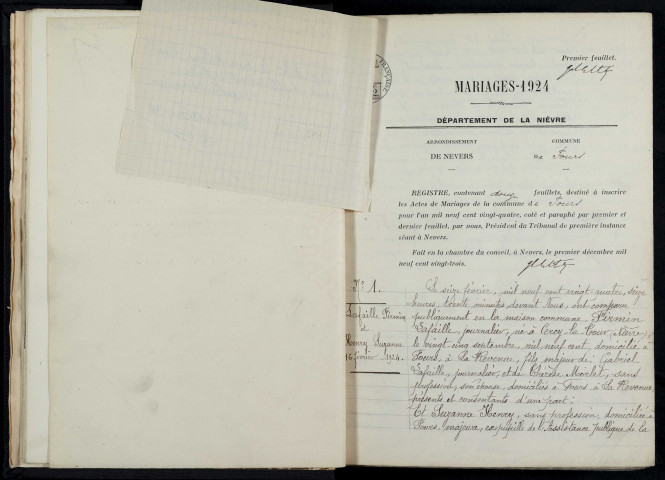 Premier feuillet.
MARIAGES-1924
DÉPARTEMENT DE LA NIÈVRE
ARRONDISSEMENT
DE NEVERS
COMMUNE
de Fours
REGISTRE, contenant douze feuillets, destiné à inscrire
les Actes de Mariages de la commune de Fours
pour l'an mil neuf cent vingt-quatre, coté et paraphé par premier et
dernier feuillet, par nous, Président du Tribunal de première instance
séant à Nevers.
Fait en la chambre du conseil, à Nevers, le premier décembre mil
neuf cent vingt-trois.
N° 1.
Lafaille Firmin
et
Henry Suzanne
16 février 1924.
Le seize février, mil neuf cent vingt-quatre, seize
heures, trente minutes devant Nous, ont comparu
publiquement en la maison commune, Firmin
Lafaille, journalier, né à Cercy-la-Tour, Nièvre,
le vingt cinq septembre, mil neuf cent, domicilié à
Fours, à La Revenue, fils majeur de Gabriel
Lafaille, journalier, et de Thérèse Morlet, sans
profession, son épouse, domiciliés à Fours à La Revenue,
présents et consentants d'une part;
Et Suzanne Henry, sans profession, domiciliée à
Fours, majeure, ex pupille de l'Assistance publique de la